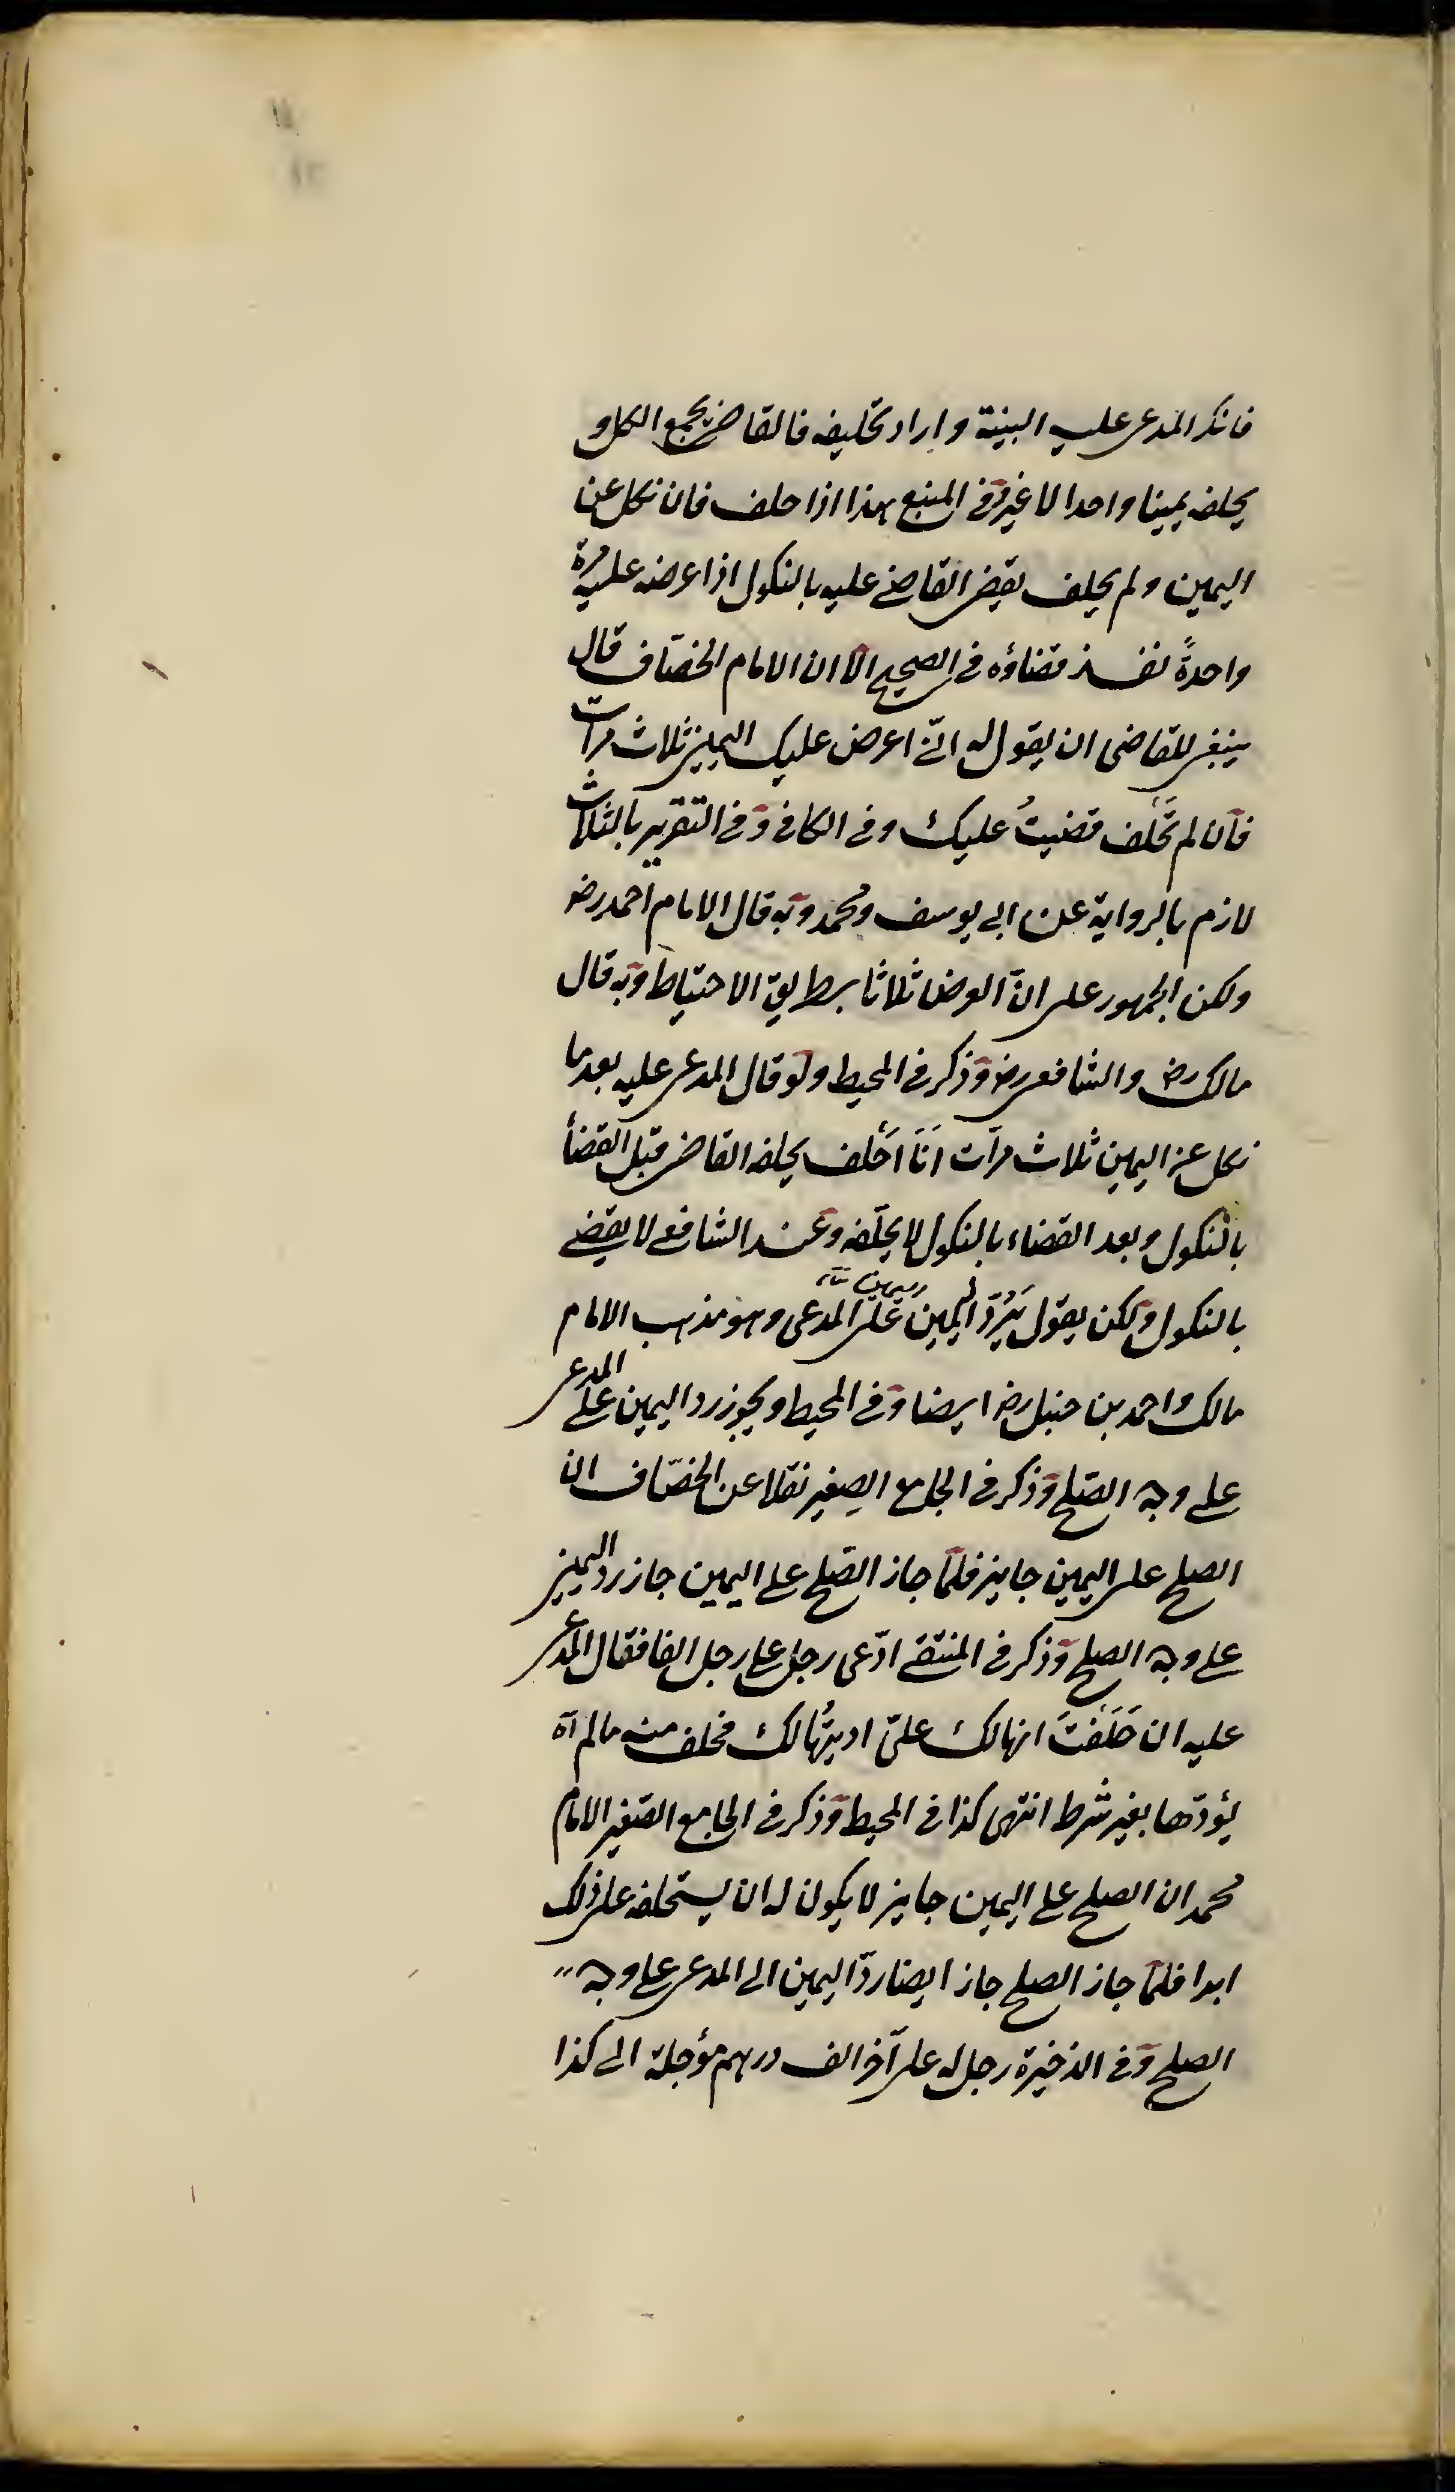 فانكر المدعى عليه البينة واراد تحليفه فالقاضى يجمع الكل و
يحلفه يمينا واحدا لا غير وفى المنبع هذا اذا حلف فان نكل عن
اليمين ولم يحلف يقضى القاضى عليه بالنكول اذا عرضه عليه مرة
واحدةً نفـــذ قضاؤه فى الصحيح الّا ان الامام الخصّاف قال
ينبغى للقاضى ان يقول له انّى اعرض عليك اليمين ثلاث مرات
فان لم تَحلَف قضيتُ عليك وفى الكافى وفى التقرير بالثلاث
لازم بالرواية عن ابى يوسف ومحمد وبه قال الامام احمد رضـ
ولكن الجمهور على انّ العرض ثلاثا بطريق الاحتياط وبه قال
مالك رضـ والشافعى رضـ وذكر فى المحيط ولو قال المدعى عليه بعد ما
نكل عن اليمين ثلاث مرآت اَنَا اَحلف يحلفه القاضى قبل القضأ
بالنكول وبعد القضاء بالنكول لا يحلّفه وعند الشافعى لا يقضى
بالنكول ولكن يقول يَرُدّ اليمين على المدعى وهو مذهب الامام
مالك واحمد بن حنبل رضـ ايضا وفى المحيط ويجوز رد اليمين على المدعى
على وجه الصّلح وذكر فى الجامع الصغير نقلا عن الخصّاف ان
الصلح على اليمين جايز فلمّا جاز الصّلح على اليمين جاز رد اليمين
على وجه الصلح وذكر فى المنتقى ادّعى رجل على رجل الفا فقال المدعى
عليه ان حَلَفتَ انها لك علىّ اديتُها لك فحلف منه مالم آه
يؤدّها بغير شرط انتهى كذا فى المحيط وذكر فى الجامع الصّغير الامام
محمد ان الصلح على اليمين جايز لا يكون له ان يستحلفه على ذلك
ابدا فلمّا جاز الصلح جاز ايضا ردّ اليمين الى المدعى على وجه
الصلح وفى الذخيرة رجل له على آخر الف درهم مؤجلة الى كذا